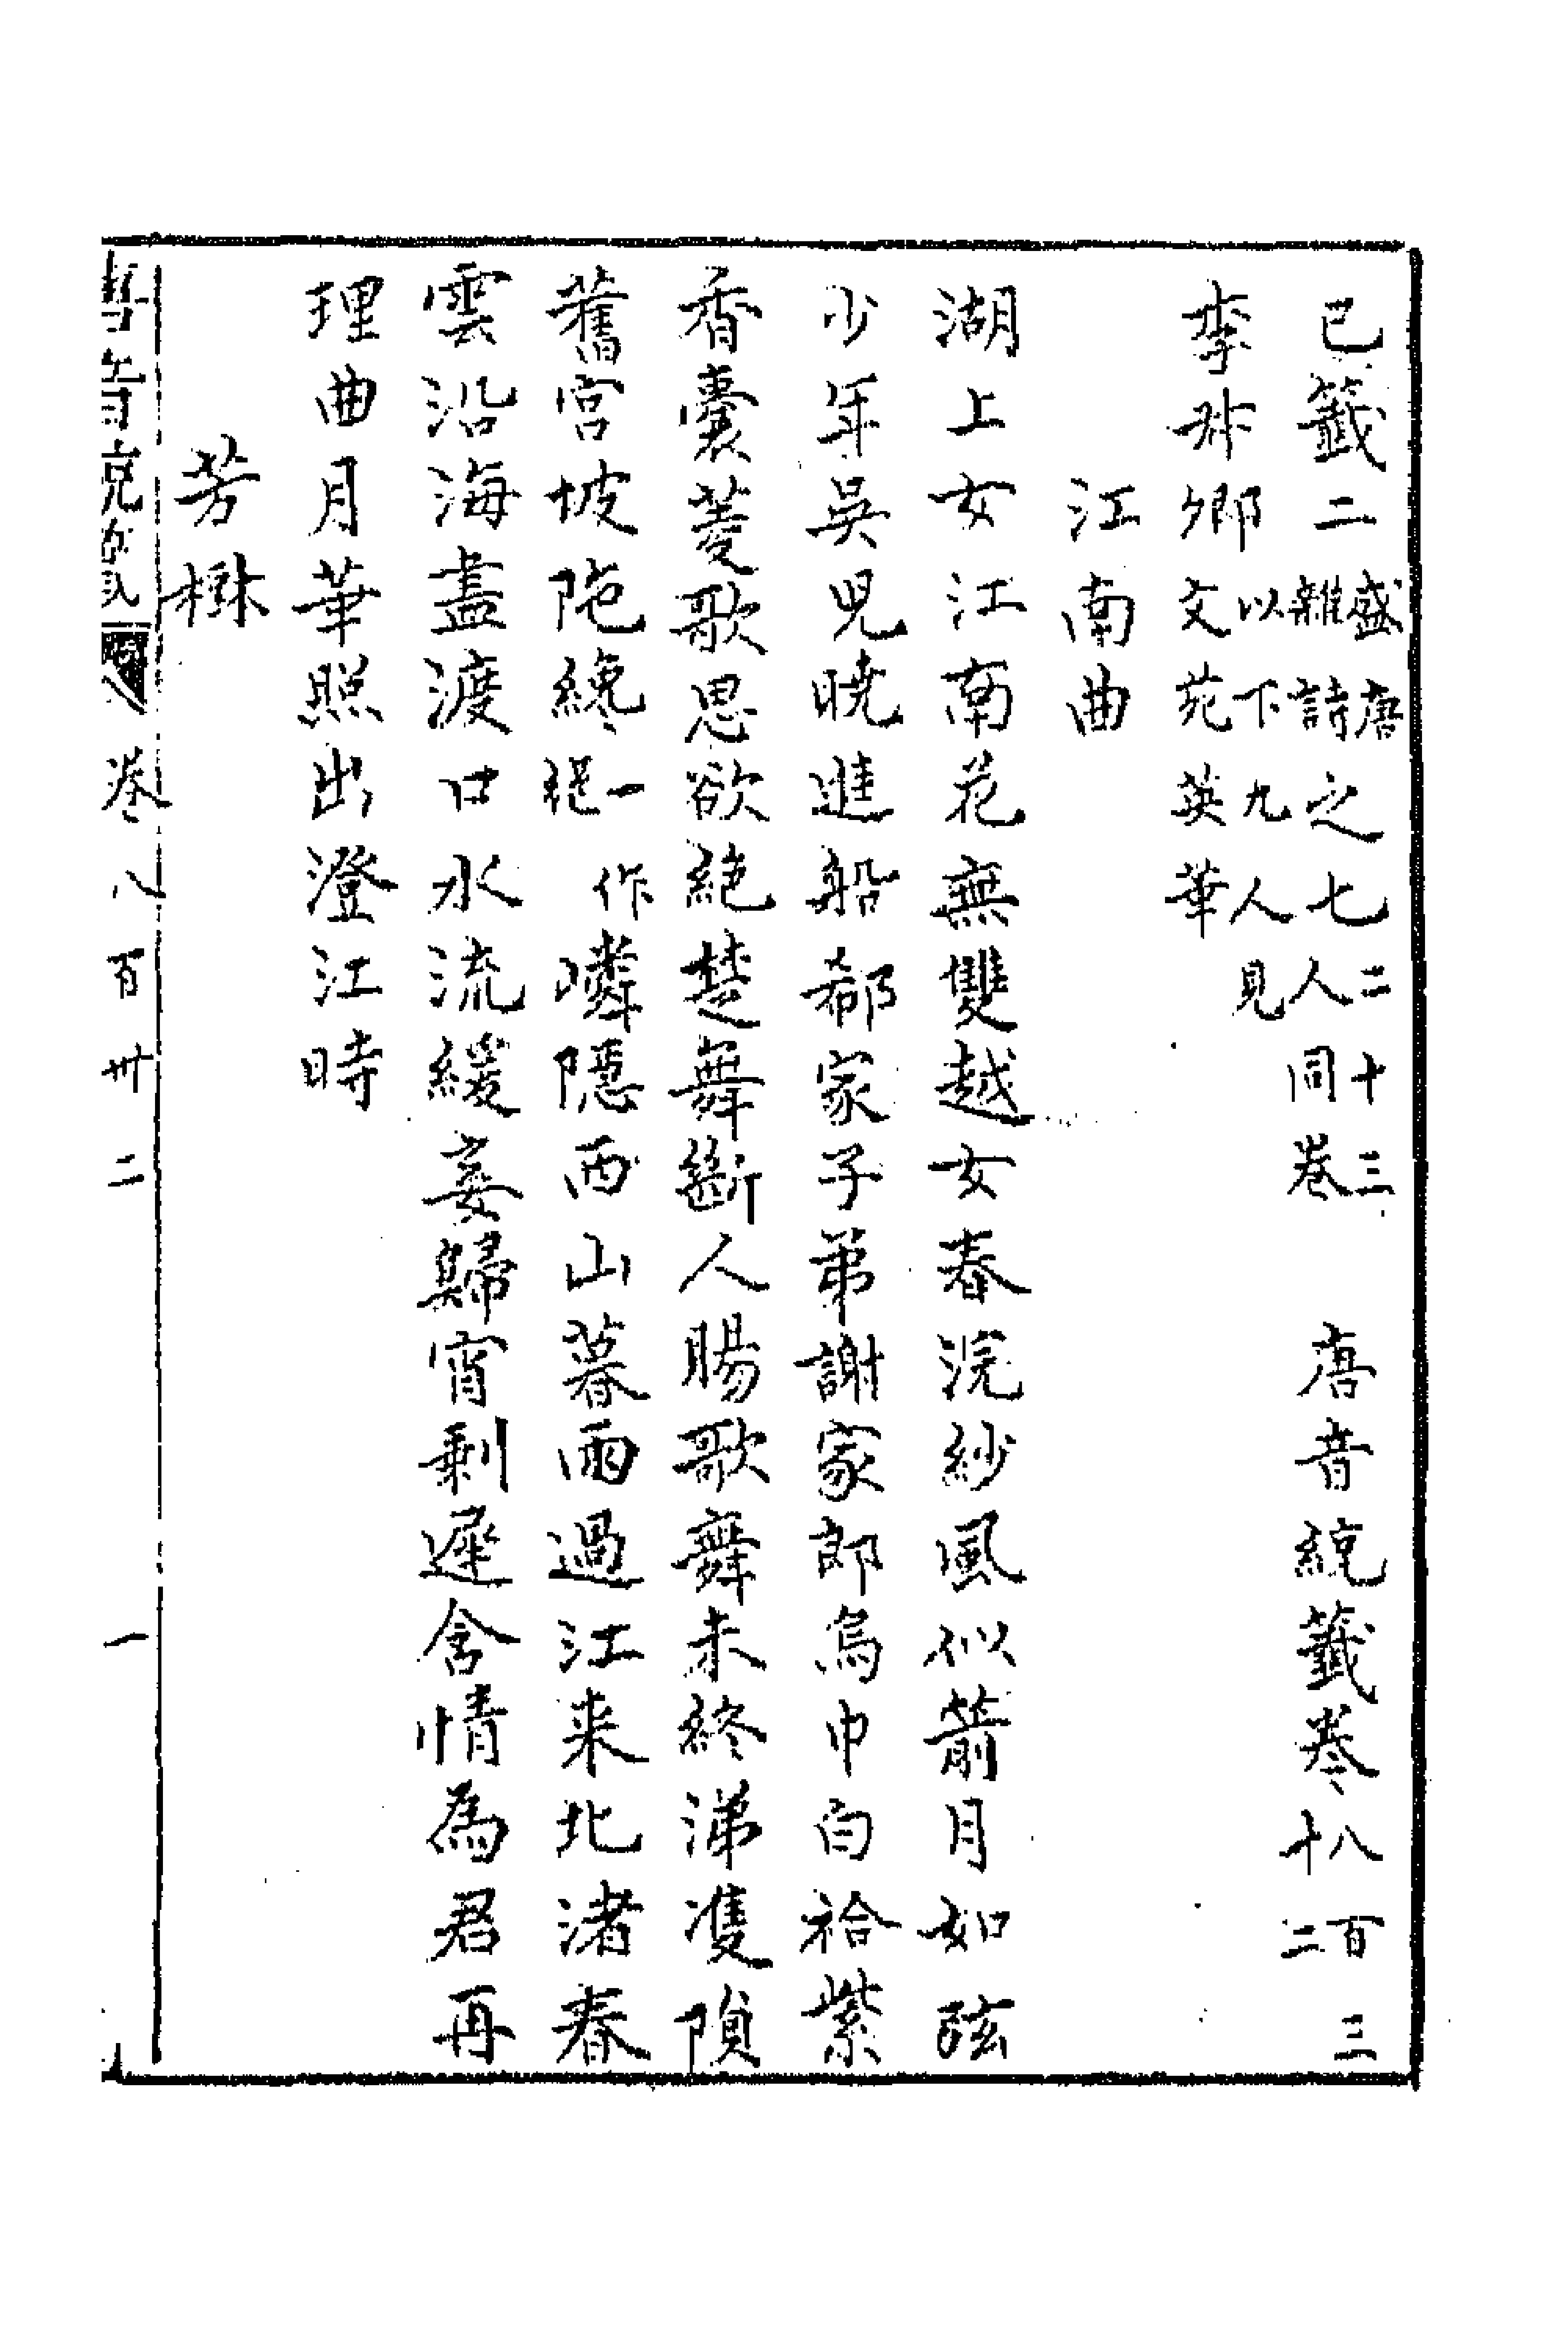 已籤二盛唐雜詩之七二十三人同卷 唐音統籤卷八百三十二
李叔卿以下九人見文苑英華
江南曲
湖上女江南花無雙越女春浣紗風似箭月如弦
少年吳兒曉進船郗家子弟謝家郎烏巾白袷紫
香囊菱歌思欲絕楚舞斷人腸歌舞未終涕雙隕
舊宮坡陁纔一作嶙隱西山暮雨過江来北渚春
雲沿海盡渡口水流緩妾歸宵剩遲含情為君再
理曲月華照出澄江時
芳樹
卷八百卅二 一